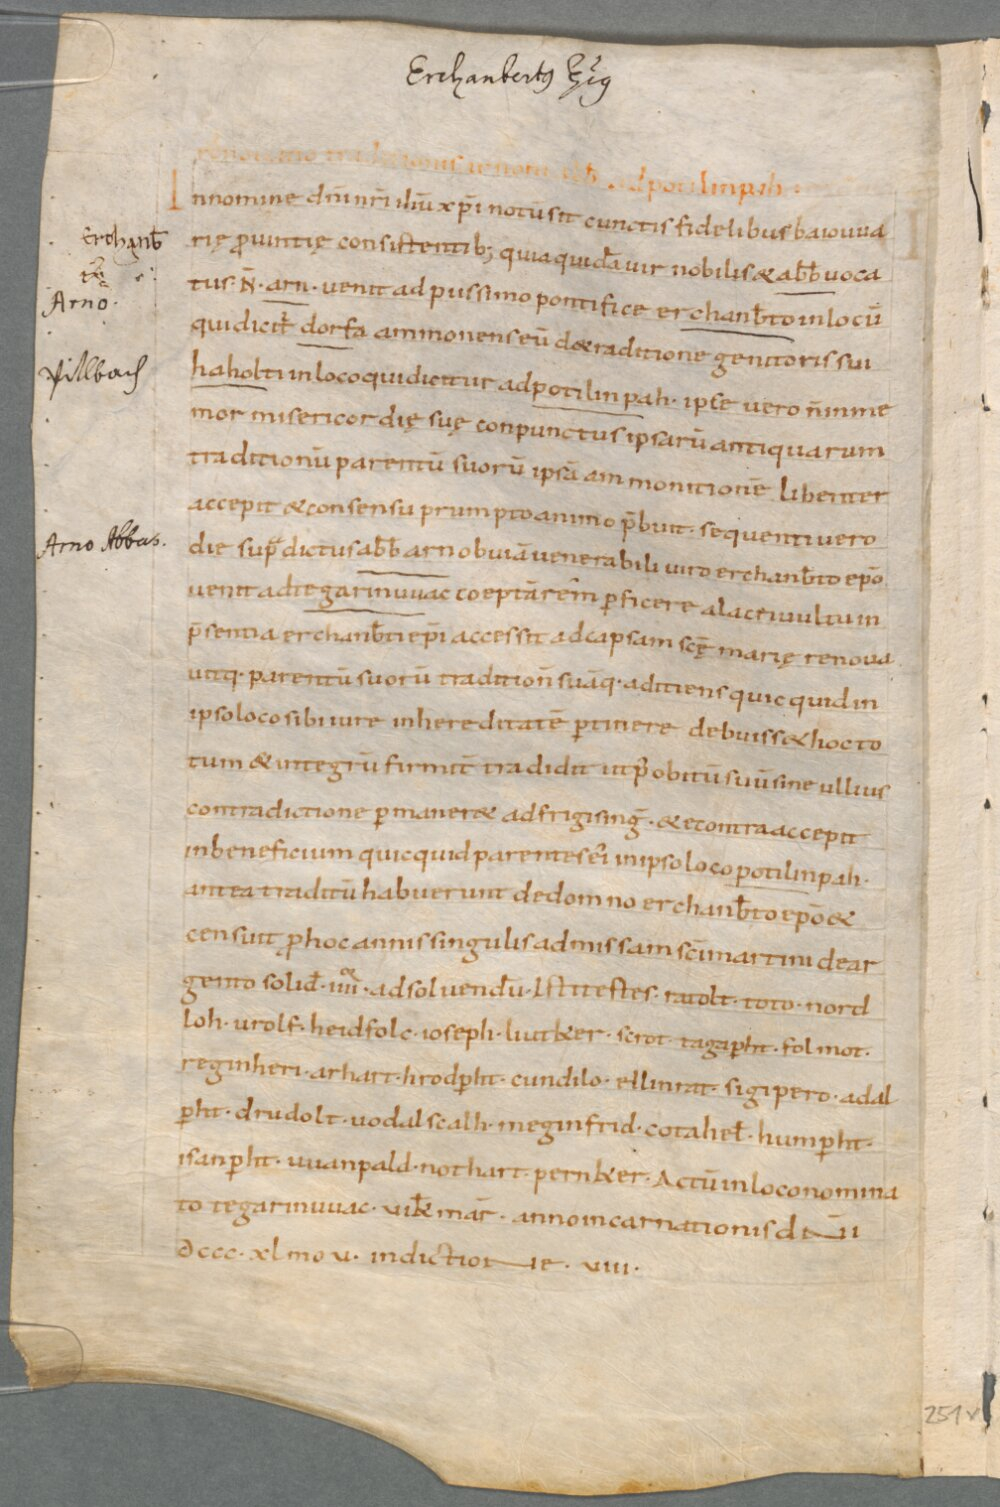 Erchanbertꝰ
renouatio traditionis ad potilinpah·
Innomine dn̄i nr̄i ih̄u xp̄i notū sit cunctis fidelibus baiouua
rię ꝓuintię consistentib; quia quidā uir nobilis & abb̄ uoca
tus· N̄· arn· uenit ad piissimo pontifice erchanb̄to in locū
qui dicit̄ dorfa ammonens eū de traditione genitoris sui
haholti in loco qui dicitur ad potilinpah· ipse uero n̄ inme
mor misericordię suę conpunctus ipsarū antiquarum
traditionū parentū suorū ipsā ammonitionē libenter
accepit & consensu prumpto animo p̄buit· sequenti uero
die sup̄dictus abb̄ arn obuiā uenerabili uiro erchanb̄to ep̄o
uenit ad tegarinuuac coeptā rēm ꝑficere alacri uultu in
p̄sentia erchanb̄ti ep̄i accessit ad capsam scę̄ marię renoua
uitq· parentū suorū traditioñ suāq· aditiens quicquid in
ipso loco sibi iure in hereditatē ꝑtinere debuiss& hoc to
tum & integrū firmit̄ tradidit ut p̄ obitū suū sine ullius
contradictione ꝑmaner& ad frigisinḡ· & econtra accepit
in beneficium quicquid parentes ei in ipso loco potilinpah·
antea traditū habuerunt de domno erchanb̄to ep̄o &
censuit ꝓ hoc annis singulis ad missam sc̄i martini de ar
gento solid̄· iiii· ad soluendū· Isti testes· ratolt· toto· nord
loh· urolf· heidfolc· ioseph· liutker· scrot· tagapht̄· folmot·
reginheri· arhart· hrodpht̄· cundilo· ellinrat· sigipero· adal
pht̄· drudolt· uodalscalh· meginfrid· cotahel̄· humpht̄·
isanpht̄· uuanpald· nothart· pernker· Actū in loco nomina
to tegarinuuac· vik̄ mār· anno incarnationis dn̄i
dccc· xlmo v· indictione· viii·
Erchanb̄
Arno·
Pillbach
Arno Abbas.
251v